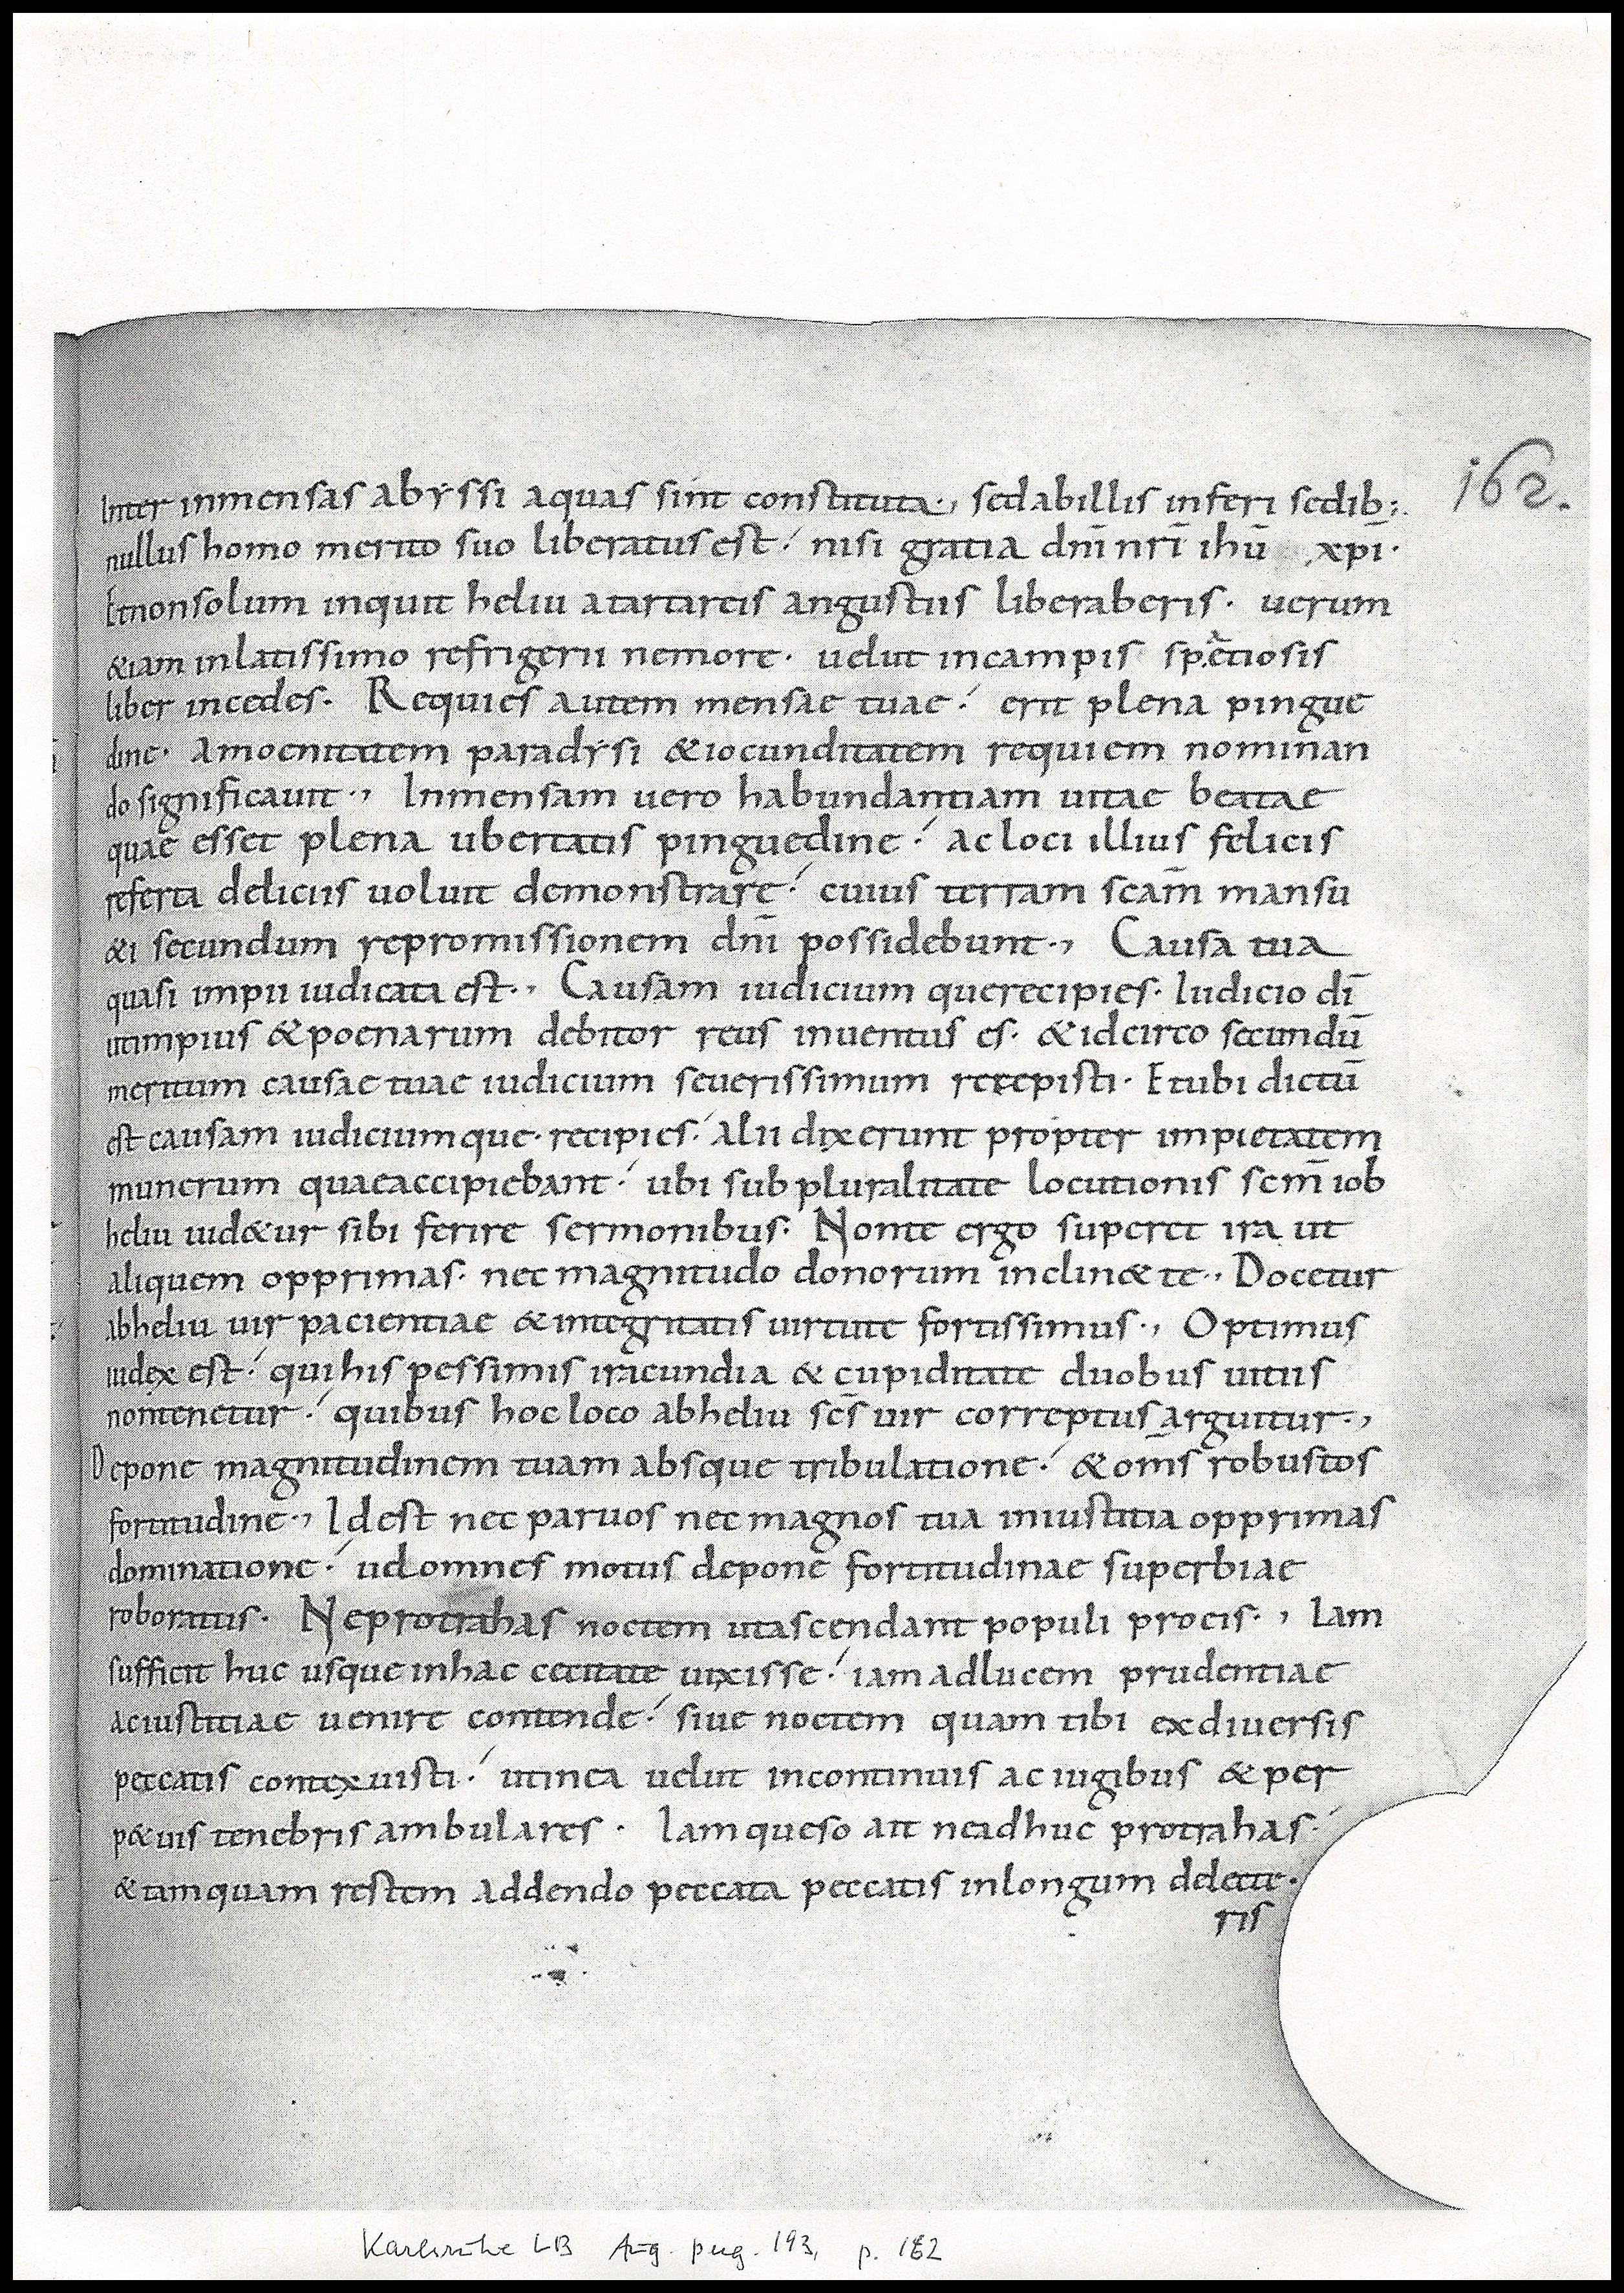 162.
Inter inmensas abyssi aquas sint constituta., sed ab illis inferi sedib;.
nullus homo merito suo liberatus est: nisi gratia dn̄i nr̄i ihū xp̄i.
Et non solum inquit heliu a tartareis angustiis liberaberis. uerum
&iam in latissimo refrigerii nemore. uelut in campis speciosis
liber incedes. Requies autem mensae tuae: erit plena pingue
dine. amoenitatem paradysi & iocunditatem requiem nominan
do significauit., Inmensam uero habundantiam uitae beatae
quae esset plena ubertatis pinguedine: ac loci illius felicis
referta deliciis uoluit demonstrare: cuius terram scam̄ mansu
&i secundum repromissionem dn̄i possidebunt., Causa tua
quasi impii iudicata est., Causam iudicium que recipies. Iudicio dī
ut impius & poenarum debitor reus inuentus es. & idcirco secundū
meritum causae tuae iudicium seuerissimum recepisti. Et ubi dictū
est causam iudicium que. recipies: alii dixerunt propter impietatem
munerum quae accipiebant: ubi sub pluralitate locutionis scm̄ iob
heliu uid&ur sibi ferire sermonibus. Non te ergo superet ira ut
aliquem opprimas. nec magnitudo donorum inclin& te., Docetur
ab heliu uir pacientiae & integritatis uirtute fortissimus., Optimus
iudex est: qui his pessimis iracundia & cupiditate duobus uitiis
non tenetur: quibus hoc loco ab heliu scs̄ uir correptus arguitur.,
Depone magnitudinem tuam absque tribulatione: & om̄s robustos
fortitudine., Id est nec paruos nec magnos tua iniustitia opprimas
dominatione: uel omnes motus depone fortitudinae superbiae
roboratus. Ne protrahas noctem ut ascendant populi pro eis., Iam
sufficit huc usque in hac cecitate uixisse: iam ad lucem prudentiae
ac iustitiae uenire contende: siue noctem quam tibi ex diuersis
peccatis contexuisti: ut in ea uelut in continuis ac iugibus & per
p&uis tenebris ambulares. Iam queso ait ne adhuc protrahas:
& tamquam restem addendo peccata peccatis in longum delecte.
ris
Karlsruhe LB Aug. perg. 193, p. 162